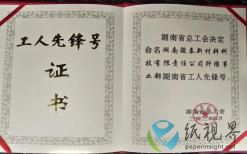 工人先锋号
证书
湖南省总工会决定
命名湖南骏泰新材料科
技有限责任公司纤维事
业部湖南省工人先锋号。
湖南省总工会
纸视界